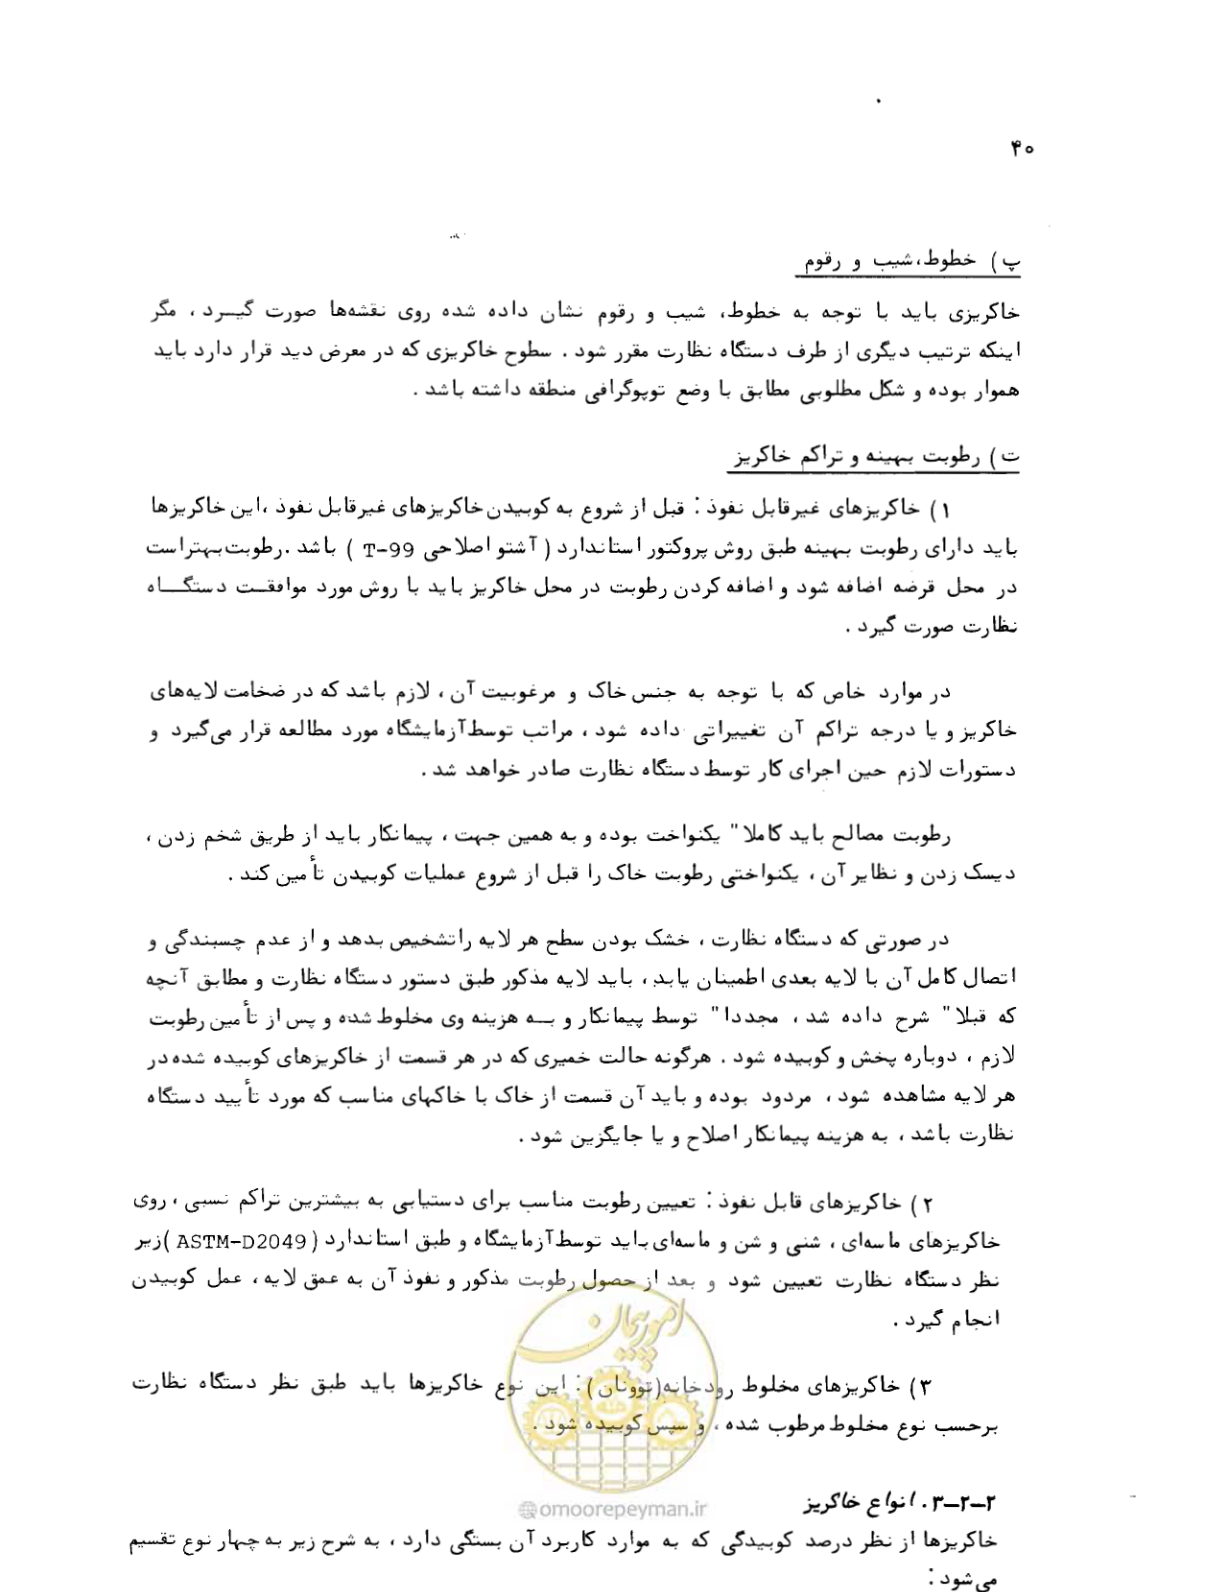 ۴۰
پ) خطوط،شیب و رقوم
خاکریزی باید با توجه به خطوط، شیب و رقوم نشان داده شده روی نقشه‌ها صورت گیــرد ، مگر
اینکه ترتیب دیگری از طرف دستگاه نظارت مقرر شود . سطوح خاکریزی که در معرض دید قرار دارد باید
هموار بوده و شکل مطلوبی مطابق با وضع توپوگرافی منطقه داشته باشد .
ت) رطوبت بهینه و تراکم خاکریز
۱) خاکریزهای غیرقابل نفوذ : قبل از شروع به کوبیدن خاکریزهای غیرقابل نفوذ ،این خاکریزها
باید دارای رطوبت بهینه طبق روش پروکتور استاندارد ( آشتو اصلاحی T-99 ) باشد .رطوبت بهتراست
در محل قرضه اضافه شود و اضافه کردن رطوبت در محل خاکریز باید با روش مورد موافقــت دستگــاه
نظارت صورت گیرد .
در موارد خاص که با توجه به جنس خاک و مرغوبیت آن ، لازم باشد که در ضخامت لایه‌های
خاکریز و یا درجه تراکم آن تغییراتی داده شود ، مراتب توسط آزمایشگاه مورد مطالعه قرار می‌گیرد و
دستورات لازم حین اجرای کار توسط دستگاه نظارت صادر خواهد شد .
رطوبت مصالح باید کاملا" یکنواخت بوده و به همین جهت ، پیمانکار باید از طریق شخم زدن ،
دیسک زدن و نظایر آن ، یکنواختی رطوبت خاک را قبل از شروع عملیات کوبیدن تأمین کند .
در صورتی که دستگاه نظارت ، خشک بودن سطح هر لایه راتشخیص بدهد و از عدم چسبندگی و
اتصال کامل آن با لایه بعدی اطمینان یابد ، باید لایه مذکور طبق دستور دستگاه نظارت و مطابق آنچه
که قبلا" شرح داده شد ، مجددا" توسط پیمانکار و بــه هزینه وی مخلوط شده و پس از تأمین رطوبت
لازم ، دوباره پخش و کوبیده شود . هرگونه حالت خمیری که در هر قسمت از خاکریزهای کوبیده شده در
هر لایه مشاهده شود ، مردود بوده و باید آن قسمت از خاک با خاکهای مناسب که مورد تأیید دستگاه
نظارت باشد ، به هزینه پیمانکار اصلاح و یا جایگزین شود .
۲) خاکریزهای قابل نفوذ : تعیین رطوبت مناسب برای دستیابی به بیشترین تراکم نسبی ، روی
خاکریزهای ماسه‌ای ، شنی و شن و ماسه‌ای باید توسط آزمایشگاه و طبق استاندارد ( ASTM-D2049 )زیر
نظر دستگاه نظارت تعیین شود و بعد از حصول رطوبت مذکور و نفوذ آن به عمق لایه ، عمل کوبیدن
انجام گیرد .
۳) خاکریزهای مخلوط رودخانه(توونان) : این نوع خاکریزها باید طبق نظر دستگاه نظارت
برحسب نوع مخلوط مرطوب شده ، و سپس کوبیده شود .
امور پیمان
@omoorepeyman.ir
۳-۲-۲. انواع خاکریز
خاکریزها از نظر درصد کوبیدگی که به موارد کاربرد آن بستگی دارد ، به شرح زیر به چهار نوع تقسیم
می‌شود :